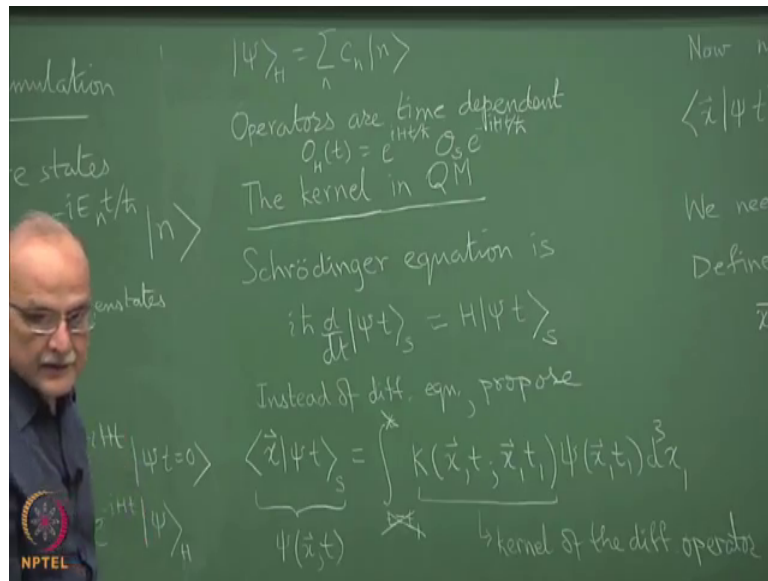 mulation
e states
-iE_n t/ħ |n⟩
enstates
iHt |Ψ t=0⟩
e^{-iHt} |Ψ⟩_H
|Ψ⟩_H = Σ_n c_n |n⟩
Operators are time dependent
O_H(t) = e^{iHt/ħ} O_S e^{-iHt/ħ}
The kernel in QM
Schrödinger equation is
iħ d/dt |Ψ t⟩_S = H |Ψ t⟩_S
Instead of diff. eqn., propose
⟨x⃗|Ψ t⟩_S = ∫ K(x⃗,t ; x⃗_1 t_1) Ψ(x⃗_1 t_1) d³x_1
Ψ(x⃗,t)
↳ kernel of the diff operator
Now n
⟨x⃗|Ψ t
We nee
Define
x⃗
NPTEL